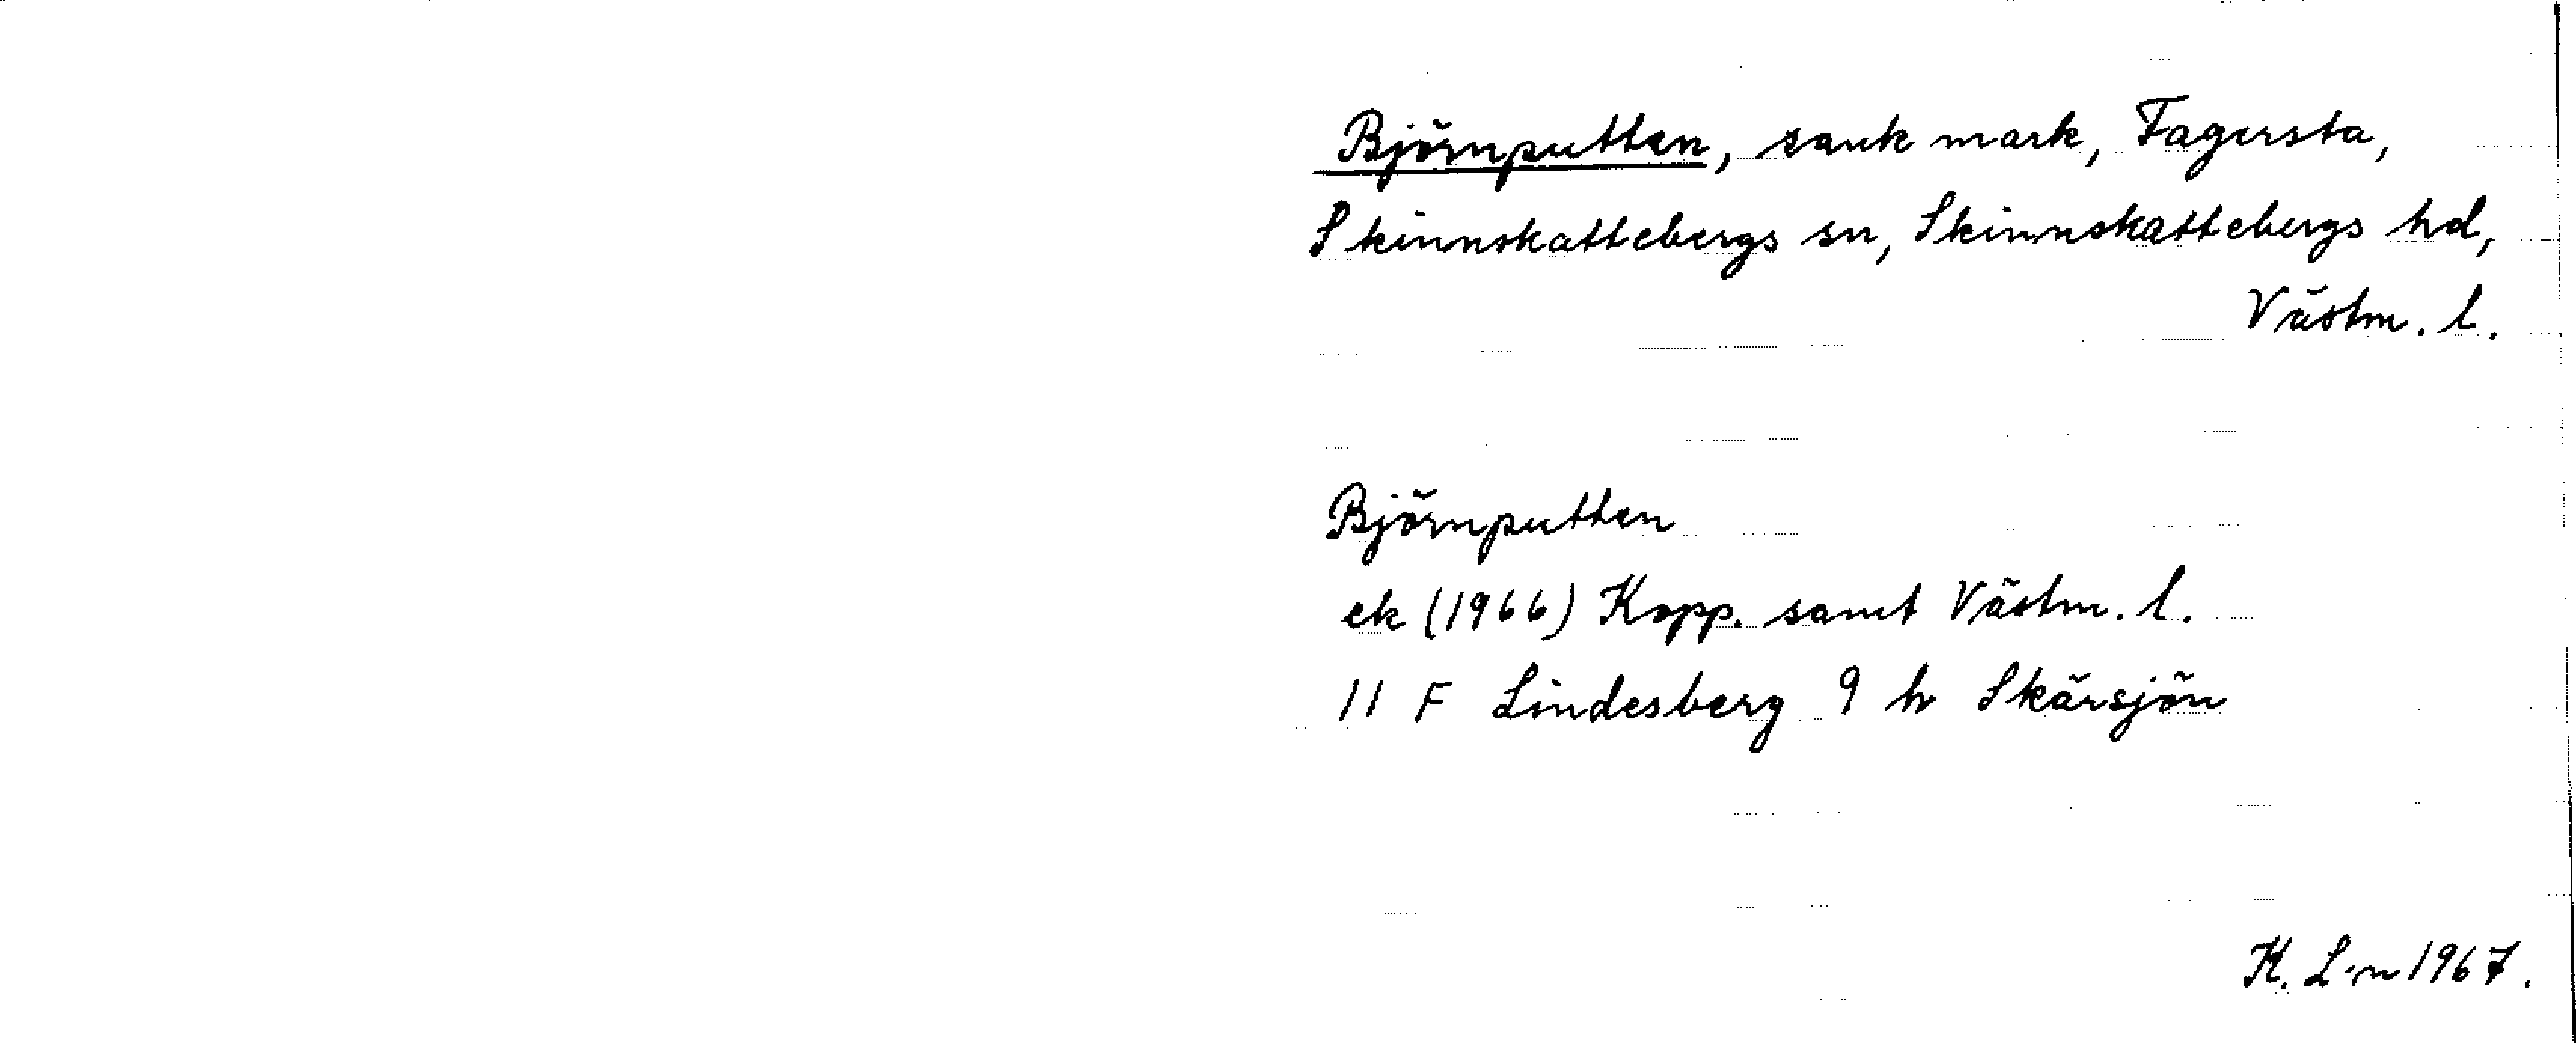 Björnputten, sank mark, Fagersta,
Skinnskattebergs sn, Skinnskattebergs hd,
Västm. l.
Björnputten
ek (1966) Kopp. samt Västm. l.
11 F Lindesberg 9 h Skärsjön
K. L-n 1967.